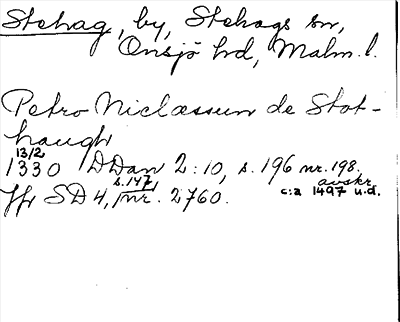 Stehag, by, Stehags sn,
Onsjö hd, Malm. l.
Petro Niclæssun de Stot-
haugh
13/2
1330 DDan 2:10, s. 196 nr. 198.
avskr.
c:a 1497 u.d.
Jfr SD 4, s. 147, nr. 2760.